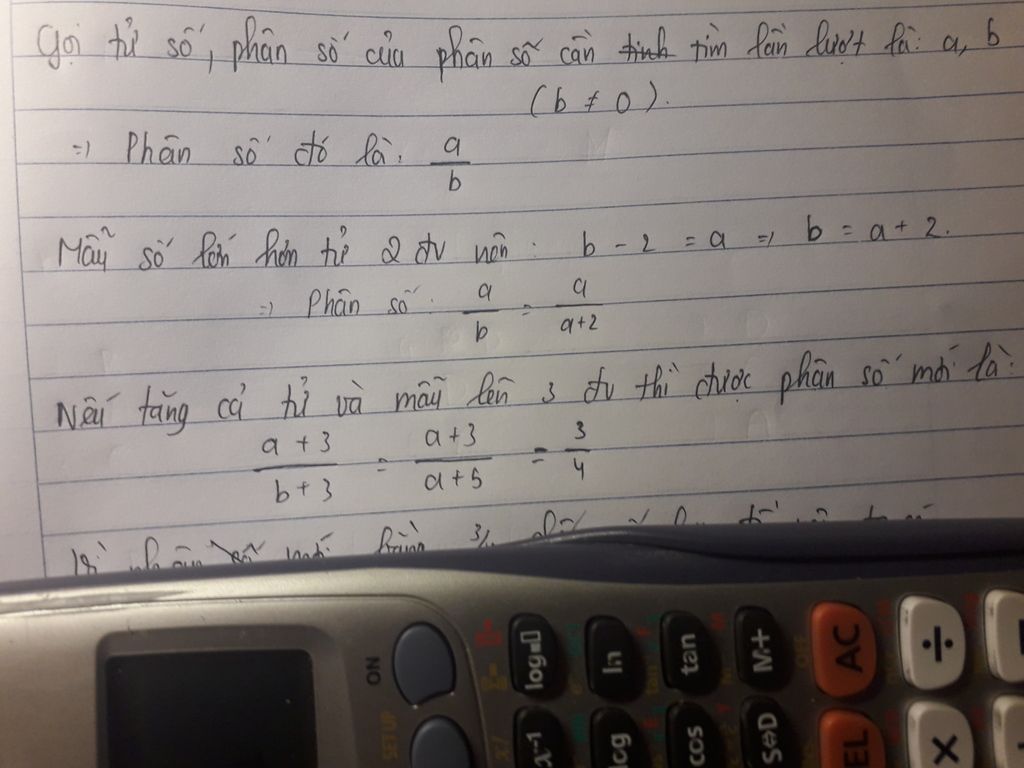 Gọi tử số, phân số của phân số cần tính tìm lần lượt là: a, b
(b ≠ 0).
=> Phân số đó là: a/b
Mẫu số lớn hơn tử 2 đv nên: b - 2 = a => b = a + 2.
=> Phân số: a/b = a/a+2
Nếu tăng cả tử và mẫu lên 3 đv thì được phân số mới là:
a + 3/b + 3 = a+3/a+5 = 3/4
ON
SETUP
log
ln
tan
M+
OFF
AC
÷
x-1
log
cos
S⇔D
EL
×